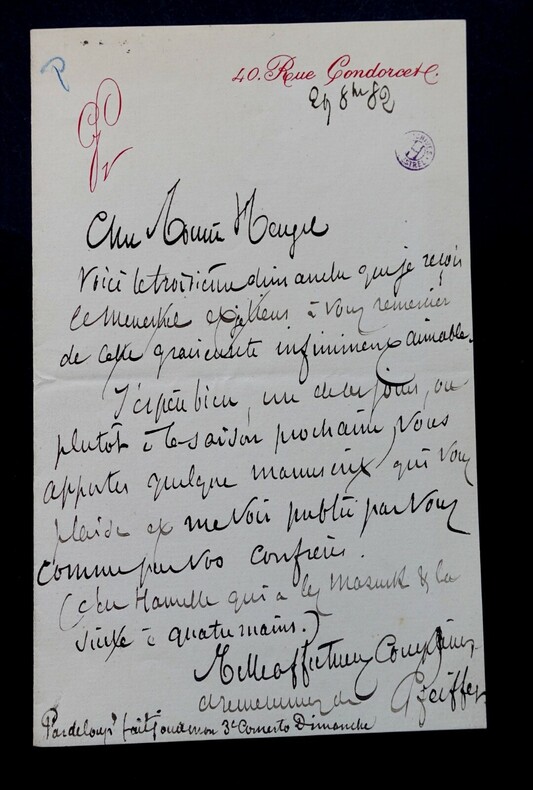 P
40. Rue Condorcet.
29 8bre 82
Cher Monsieur Heugel
Voici le troisième dimanche que je reçois
le Menestrel et je tiens à vous remercier
de cette gracieuseté infiniment aimable.
J'espère bien, un de ces jours, ou
plutôt à la saison prochaine, vous
apporter quelque manuscrit qui vous
plaise et me voir publié par vous
comme par vos confrères.
(c'est Hamelle qui a les Mazurk & la
suite à quatre mains.)
Mille affectueux compliments
de
Pfeiffer
Pasdeloup fait jouer mon 3e Concerto Dimanche